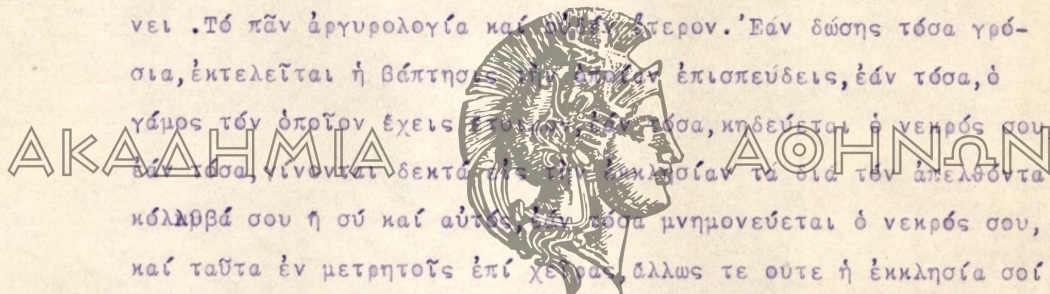 νει .Τό πᾶν ἀργυρολογία καί οὐδέν ἕτερον.Ἐάν δώσης τόσα γρό-
σια,ἐκτελεῖται ἡ βάπτησις τήν ὁποίαν ἐπισπεύδεις,ἐάν τόσα,ὁ
γάμος τόν ὁποῖον ἔχεις ἕτοιμον,ἐάν τόσα,κηδεύεται ὁ νεκρός σου
ἐάν τόσα,γίνονται δεκτά εἰς τήν ἐκκλησίαν τά διά τόν ἀπελθόντα
κόλλυβά σου ἤ σύ καί αὐτός,ἐάν τόσα μνημονεύεται ὁ νεκρός σου,
καί ταῦτα ἐν μετρητοῖς ἐπί χεῖρας,ἄλλως τε ουτε ἡ ἐκκλησία σοί
ΑΚΑΔΗΜΙΑ ΑΘΗΝΩΝ